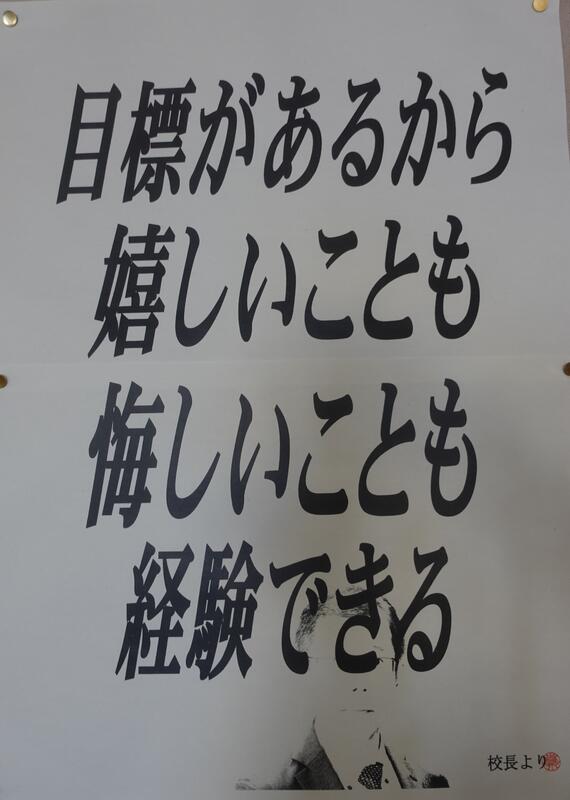 目標があるから
嬉しいことも
悔しいことも
経験できる
校長より